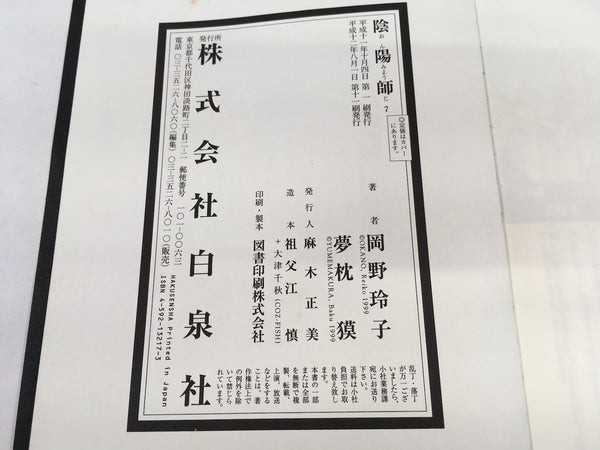 陰陽師 7
おんみょうじ
◎定価はカバーにあります。
平成十一年十月四日 第一刷発行
平成十二年八月一日 第十一刷発行
著者 岡野玲子
©OKANO, Reiko 1999
夢枕 獏
©YUMEMAKURA, Baku 1999
発行人 麻木正美
造本 祖父江 慎
+大津千秋(COZ-FISH)
印刷・製本 図書印刷株式会社
発行所
株式会社白泉社
東京都千代田区神田淡路町二丁目二-二 郵便番号 一〇一-〇〇六三
電話 〇三-三五二六-八〇六〇(編集) 〇三-三五二六-八〇一〇(販売)
HAKUSENSHA Printed in Japan
ISBN 4-592-13217-3
乱丁・落丁
が万一ござ
いましたら、
小社業務課
宛にお送り
下さい。
送料は小社
負担でお取
り替え致し
ます。
本書の一部
または全部
を無断で複
製、転載、
上演、放送
などをする
ことは、著
作権法上で
の例外を除
いて禁じら
れています。